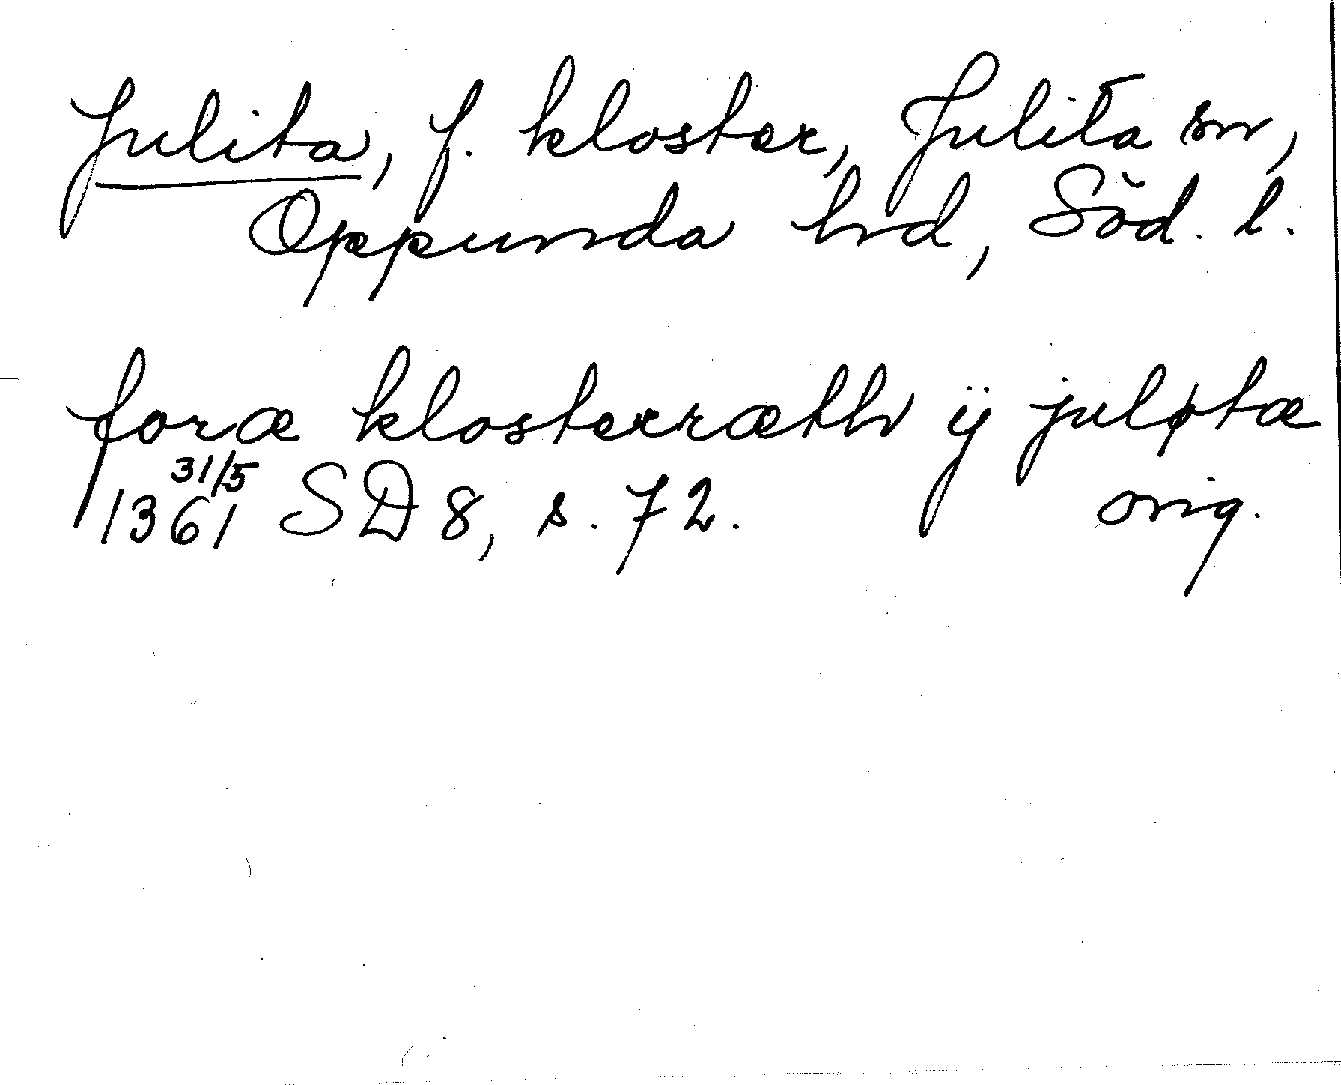 Julita, f. kloster, Julita sn,
Oppunda hd, Söd. l.
foræ klosterræth ÿ juløtæ
31/5
1361 SD 8, s. 72. orig.